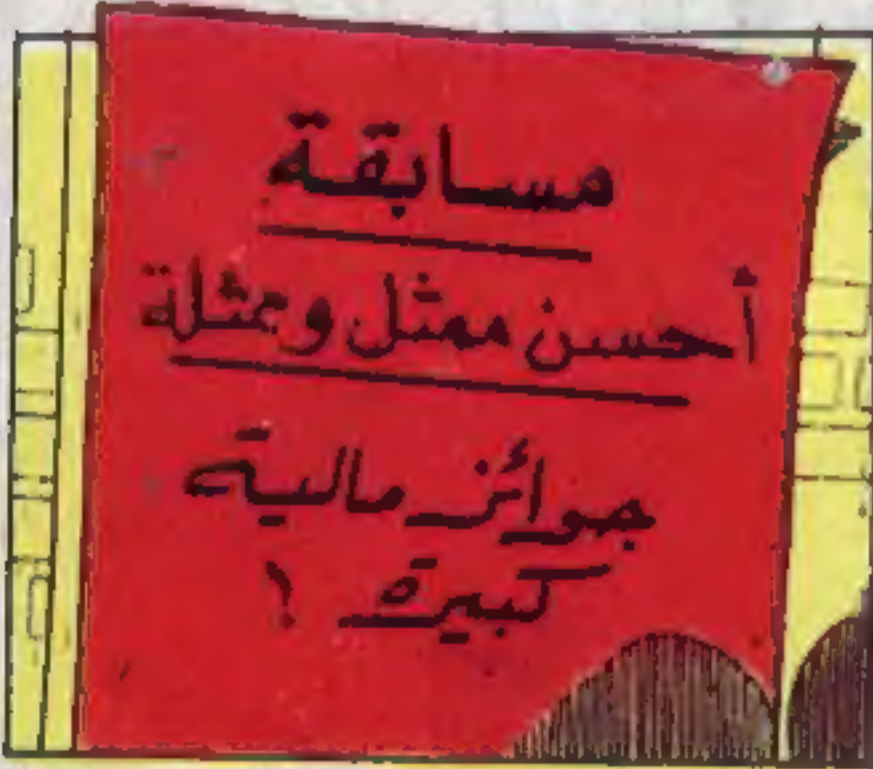 مسابقة
أحسن ممثل وممثلة
جوائز مالية
كبيرة !